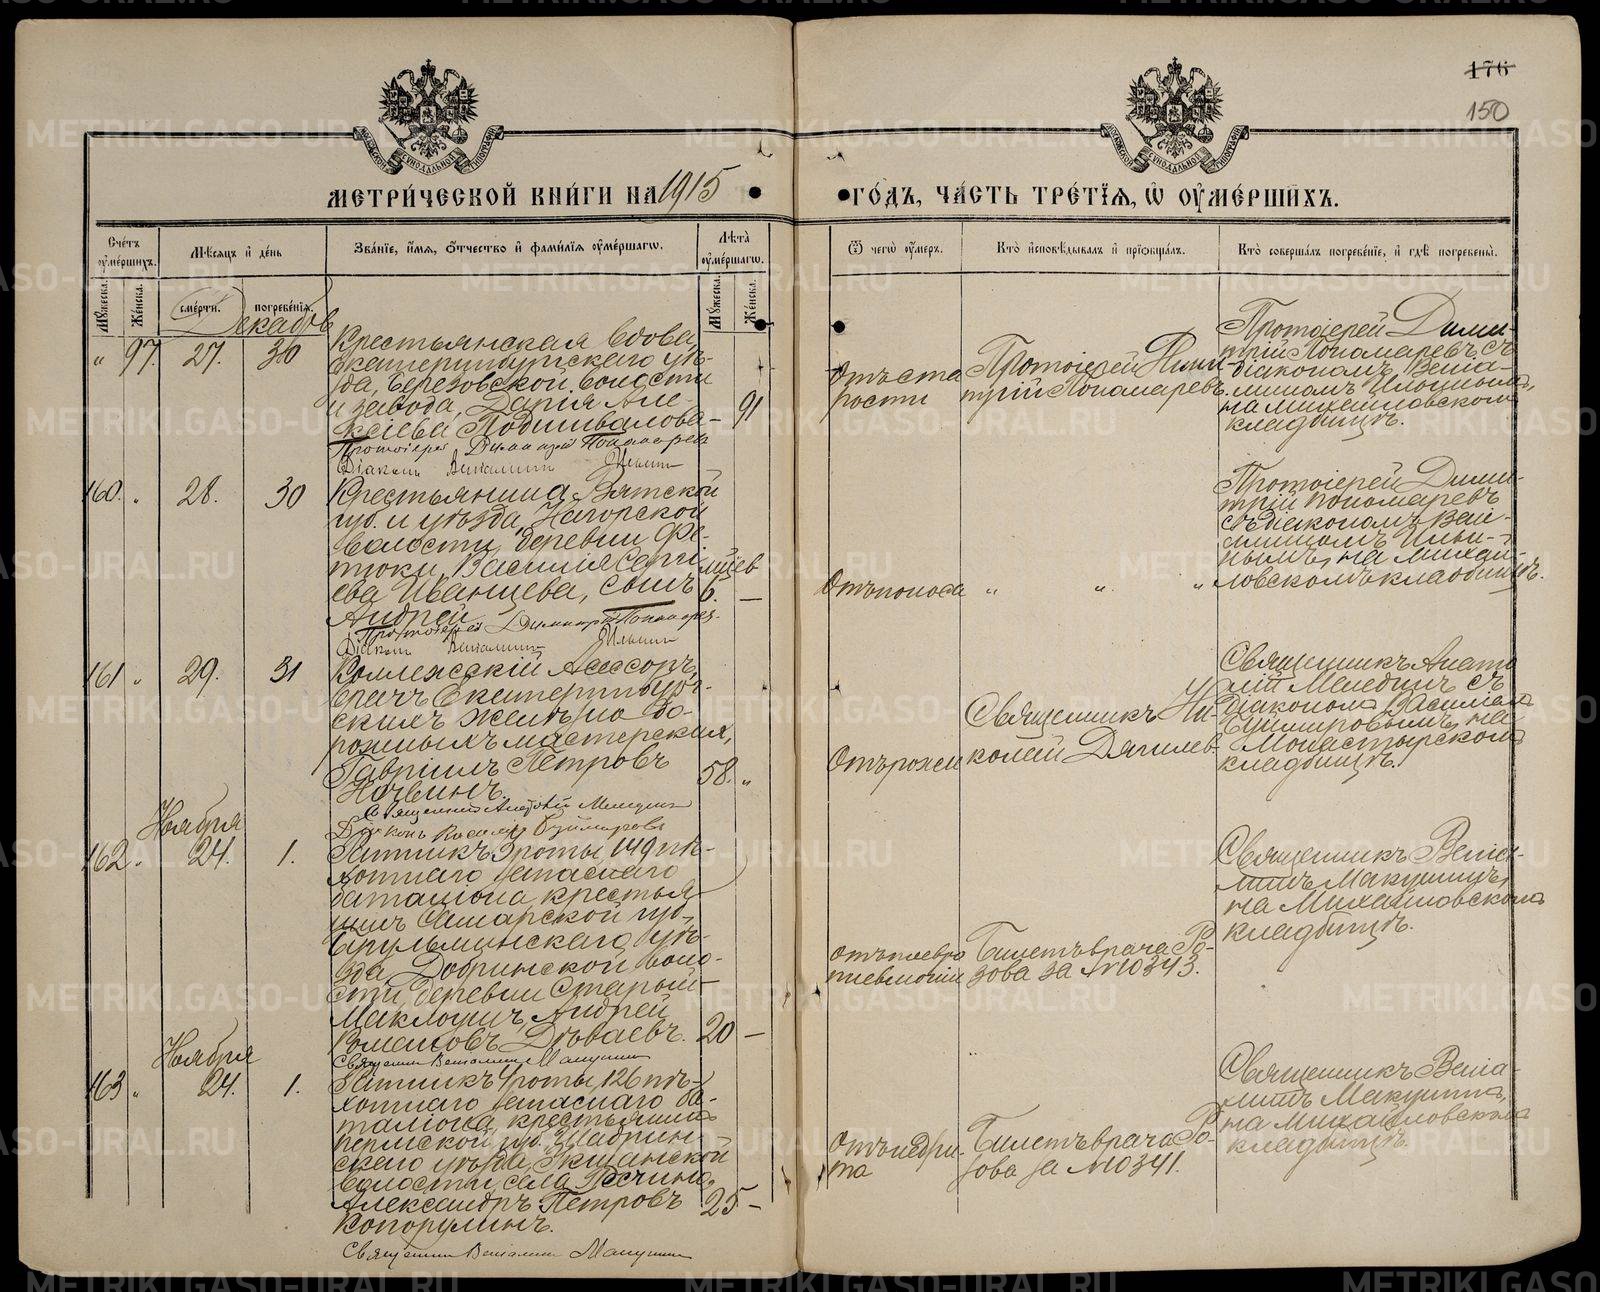 176
150
МЕТРИ́ЧЕСКОЙ КНИ́ГИ НА 1915
ГО́ДЪ, ЧА́СТЬ ТРЕ́ТЇЯ, Ѡ҆ ОУ҆МЕ́РШИХЪ.
Сче́тъ оу҆ме́ршихъ.
Мѣ́сяцъ и҆ де́нь
Зва́нїе, и҆́мя, ѻ҆́тчество и҆ фами́лїя оу҆ме́ршагѡ.
Лѣ́та оу҆ме́ршагѡ.
Ѿ чегѡ̀ оу҆́меръ.
Кто̀ и҆сповѣ́дывалъ и҆ прїѡбща́лъ.
Кто̀ соверша́лъ погребе́нїе, и҆ гдѣ̀ погребены̀.
Му́жеска.
Же́нска.
сме́рти.
погребе́нїя.
Му́жеска.
Же́нска.
Декабрь
" 97. 27. 30
Крестьянская вдова,
Екатеринбургскаго уѣз-
да, Березовской волости
и завода, Дарія Але-
ксіева Подшивалова
91
Протоіерей Димитрій Пономаревъ
Діаконъ Веніаминъ Ильинъ
Отъ ста
рости
Протоіерей Дими
трій Пономаревъ.
Протоіерей Дими-
трій Пономаревъ съ
діакономъ Веніа-
миномъ Ильинымъ,
на Михайловскомъ
кладбищѣ.
160. " 28. 30
Крестьянина Вятской
губ. и уѣзда, Нагорской
волости, деревни Фе-
тюки, Василія Сергі-
ева Иванцева, сынъ
Андрей
мѣсев
6. —
Протоіерей Димитрій Пономарев.
Діаконъ Веніаминъ Ильинъ
Отъ поноса " " "
Протоіерей Дими-
трій Пономаревъ
съ діакономъ Вені-
аминомъ Ильи-
нымъ, на Михай-
ловскомъ кладбищѣ.
161 " 29. 31
Коллежскій Асессоръ,
врачъ Екатеринбург-
скихъ желѣзно до-
рожныхъ мастерскихъ,
Гавріилъ Петровъ
58. "
Священникъ Анатолій
Діаконъ Василій
Отъ рожи
Священникъ Ни-
колай Дягилев
Священникъ Анато
лій Меледин съ
діакономъ Василіемъ
на
Монастырскомъ
кладбищѣ.
Ноября
162 " 24. 1.
Ратникъ 3 роты 149 пѣ-
хотнаго запаснаго
баталіона, крестья-
нинъ Самарской губ.,
Бугульминскаго уѣз-
да, волос-
сти, деревни Старой
Андрей
Романовъ
20 —
Священникъ Веніаминъ Макушинъ
Отъ плевро
пневмоніи
Билетъ врача Ро-
зова за № 10343.
Священникъ Веніа-
минъ Макушинъ,
на Михайловскомъ
кладбищѣ.
Ноября
163 " 24. 1.
Ратникъ 4 роты, 126 пѣ-
хотнаго запаснаго ба-
таліона, крестьянинъ
Пермской губ. Шадрин-
скаго уѣзда,
волости, села
Александръ Петровъ
Копорулинъ.
25 —
Священникъ Веніаминъ Макушинъ
Отъ нефри-
та
Билетъ врача Ро-
зова за № 10341.
Священникъ Веніа-
минъ Макушинъ,
на Михайловскомъ
кладбищѣ.
METRIKI.GASO-URAL.RU